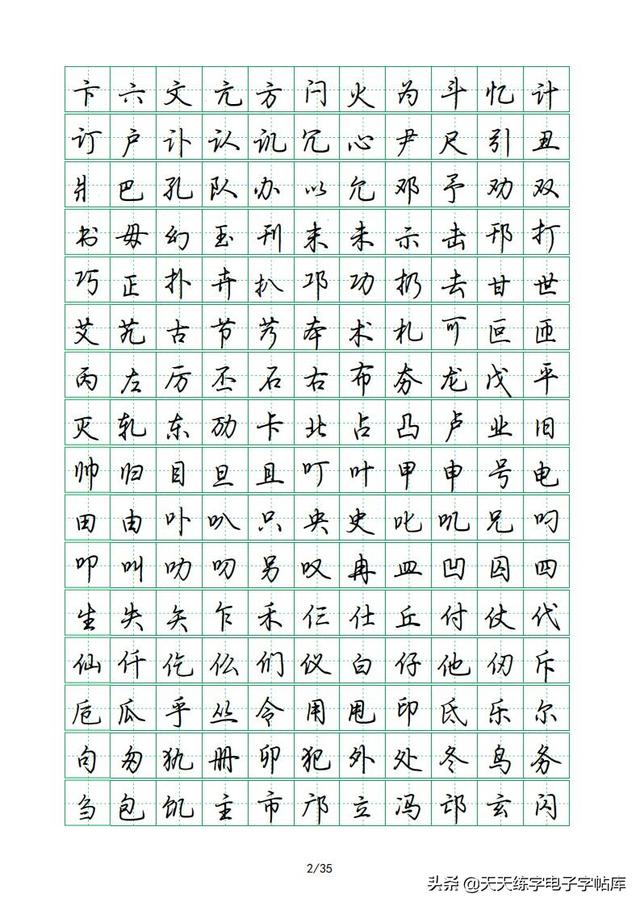 卞六文亢方闩火为斗忆计
订户讣认讥冗心尹尺引丑
爿巴孔队办以允邓予劝双
书毋幻玉刊末未示击邗打
巧正扑卉扒邛功扔去甘世
艾艽古节艿本术札可叵匝
丙左厉丕石右布夯龙戊平
灭轧东劢卡北占凸卢业旧
帅归目旦且叮叶甲申号电
田由卟叭只央史叱叽兄叼
叩叫叻叨另叹冉皿凹囚四
生失矢乍禾仨仕丘付仗代
仙仟仡仫们仪白仔他仞斥
卮瓜乎丛令用甩印氐乐尔
句匆犰册卯犯外处冬鸟务
刍包饥主市邝立冯邙玄闪
2/35
头条 @天天练字电子字帖库